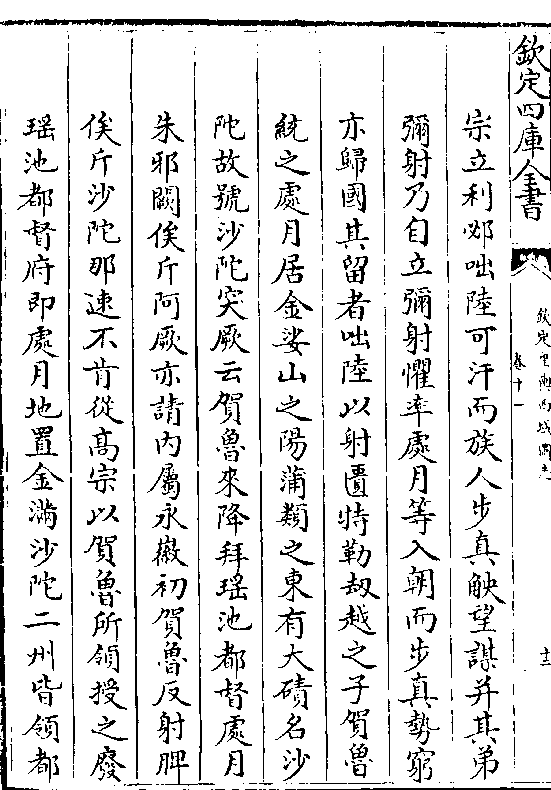 欽定四庫全書
欽定皇輿西域圖志
卷十一
十三
宗立利邲咄陸可汗而族人步真觖望謀并其弟
彌射乃自立彌射懼率處月等入朝而步真勢窮
亦歸國其留者咄陸以射匱特勒劫越之子賀魯
統之處月居金娑山之陽蒲類之東有大磧名沙
陀故號沙陀突厥云賀魯來降拜瑶池都督處月
朱邪闕俟斤阿厥亦請内屬永徽初賀魯反射脾
俟斤沙陀那速不肯從髙宗以賀魯所領授之廢
瑶池都督府即處月地置金滿沙陀二州皆領都